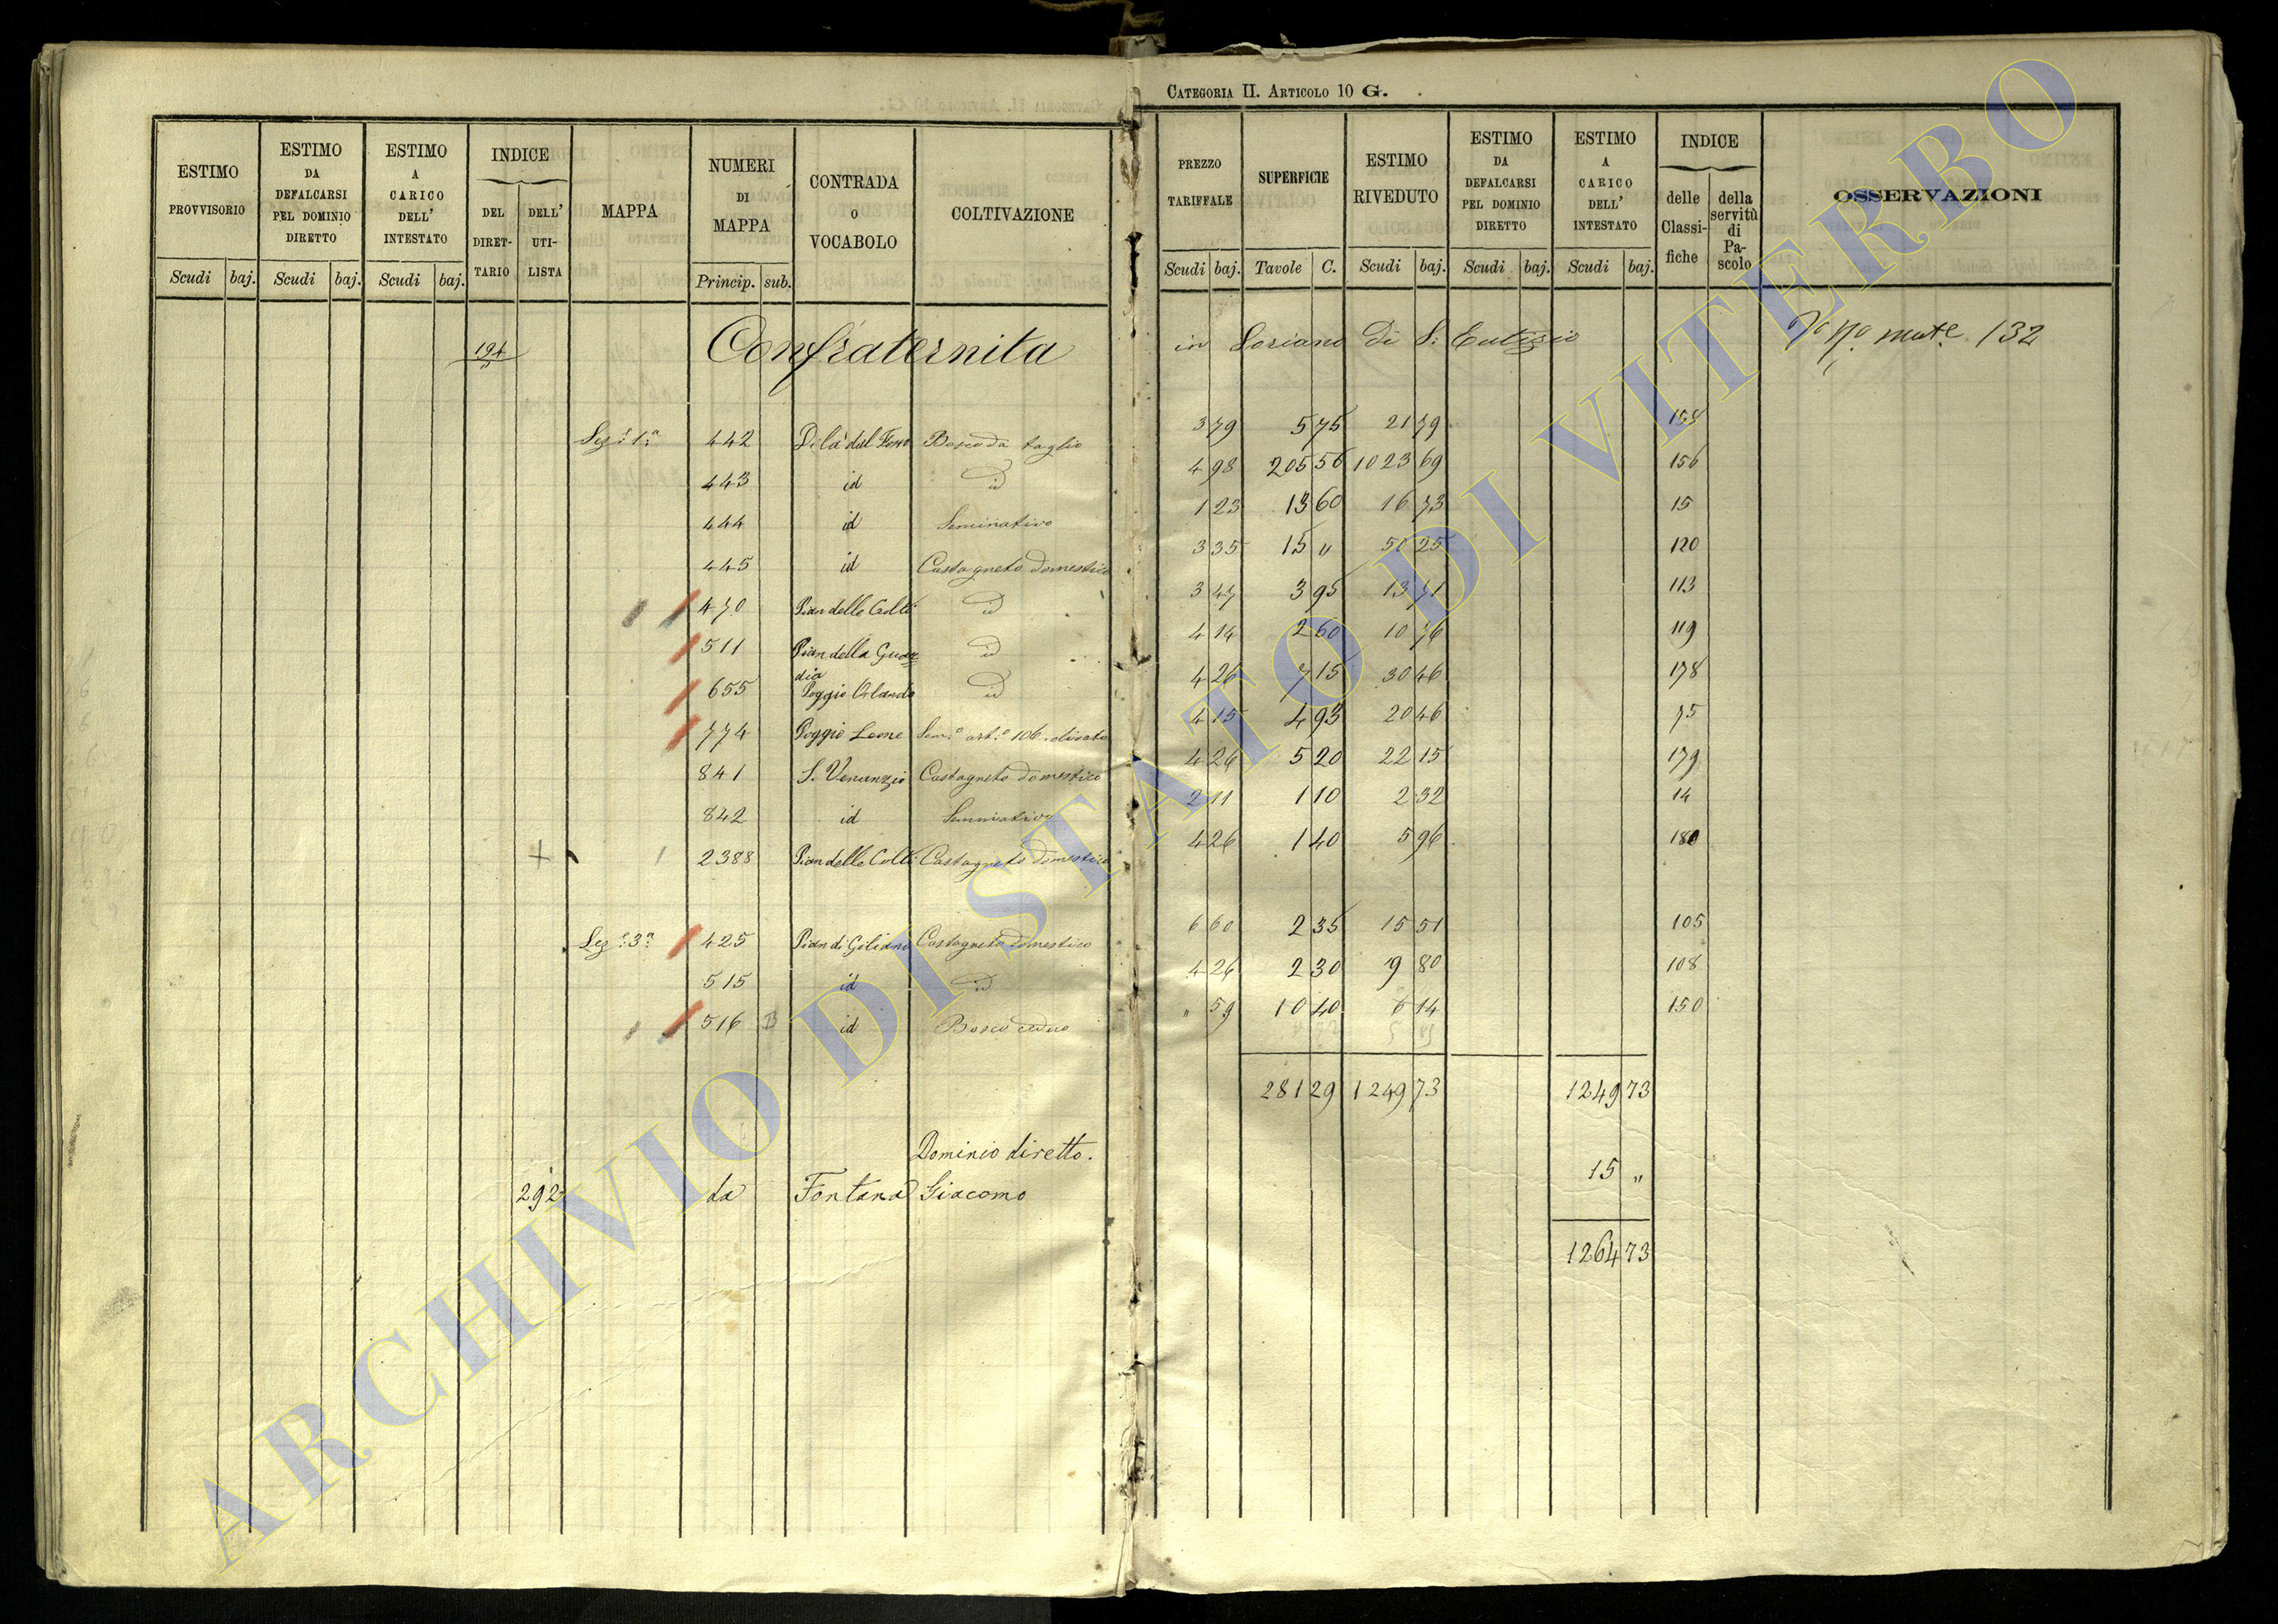 CATEGORIA II. ARTICOLO 10 G.
ESTIMO PROVVISORIO Scudi baj.
ESTIMO DA DEFALCARSI PEL DOMINIO DIRETTO Scudi baj.
ESTIMO A CARICO DELL' INTESTATO Scudi baj.
INDICE DEL DIRET-TARIO DELL' UTI-LISTA
MAPPA
NUMERI DI MAPPA Princip. sub.
CONTRADA O VOCABOLO
COLTIVAZIONE
PREZZO TARIFFALE Scudi baj.
SUPERFICIE Tavole C.
ESTIMO RIVEDUTO Scudi baj.
ESTIMO DA DEFALCARSI PEL DOMINIO DIRETTO Scudi baj.
ESTIMO A CARICO DELL' INTESTATO Scudi baj.
INDICE delle Classi-fiche della servitù di Pa-scolo
OSSERVAZIONI
194 Confraternita in Soriano di S. Eutizio 132
Sez. 1ª 442 Di là del Fosso Bosco da taglio 3 79 5 75 21 79 154
443 id id 4 98 205 56 1023 69 156
444 id Seminativo 1 23 13 60 16 73 15
445 id Castagneto domestico 3 35 15 " 50 25 120
470 Pian delle Colli id 3 47 3 95 13 71 113
511 Pian della Guardia id 4 14 2 60 10 76 119
655 Poggio Orlando id 4 26 7 15 30 46 178
774 Poggio Leone Sem.º art.º 106. 4 15 4 93 20 46 75
841 S. Venanzio Castagneto domestico 4 26 5 20 22 15 179
842 id Seminativo 2 11 1 10 2 32 14
+ 2388 Pian delle Colli Castagneto domestico 4 26 1 40 5 96 180
Sez. 3ª 425 Pian di Giliano Castagneto domestico 6 60 2 35 15 51 105
515 id id 4 26 2 30 9 80 108
516 B id Bosco ceduo " 59 10 40 6 14 150
281 29 1249 73 1249 73
Dominio diretto.
292 da Fontana Giacomo 15 "
1264 73
ARCHIVIO DI STATO DI VITERBO